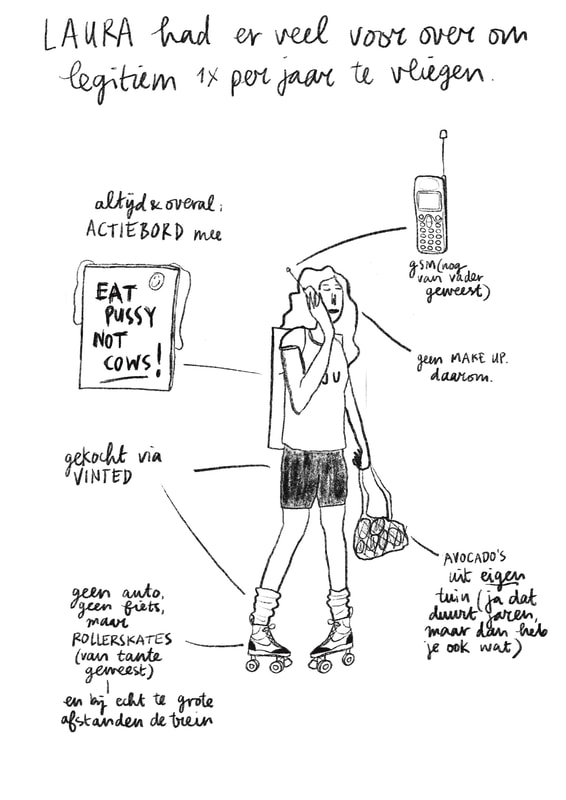 LAURA had er veel voor over om
legitiem 1x per jaar te vliegen.
altijd & overal:
ACTIEBORD mee
EAT
PUSSY
NOT
COWS!
gsm (nog
van vader
geweest)
geen MAKE UP.
daarom.
JU
gekocht via
VINTED
AVOCADO'S
uit eigen
tuin (ja dat
duurt jaren,
maar dan heb
je ook wat)
geen auto,
geen fiets,
maar
ROLLERSKATES
(van tante
geweest)
en bij echt te grote
afstanden de trein